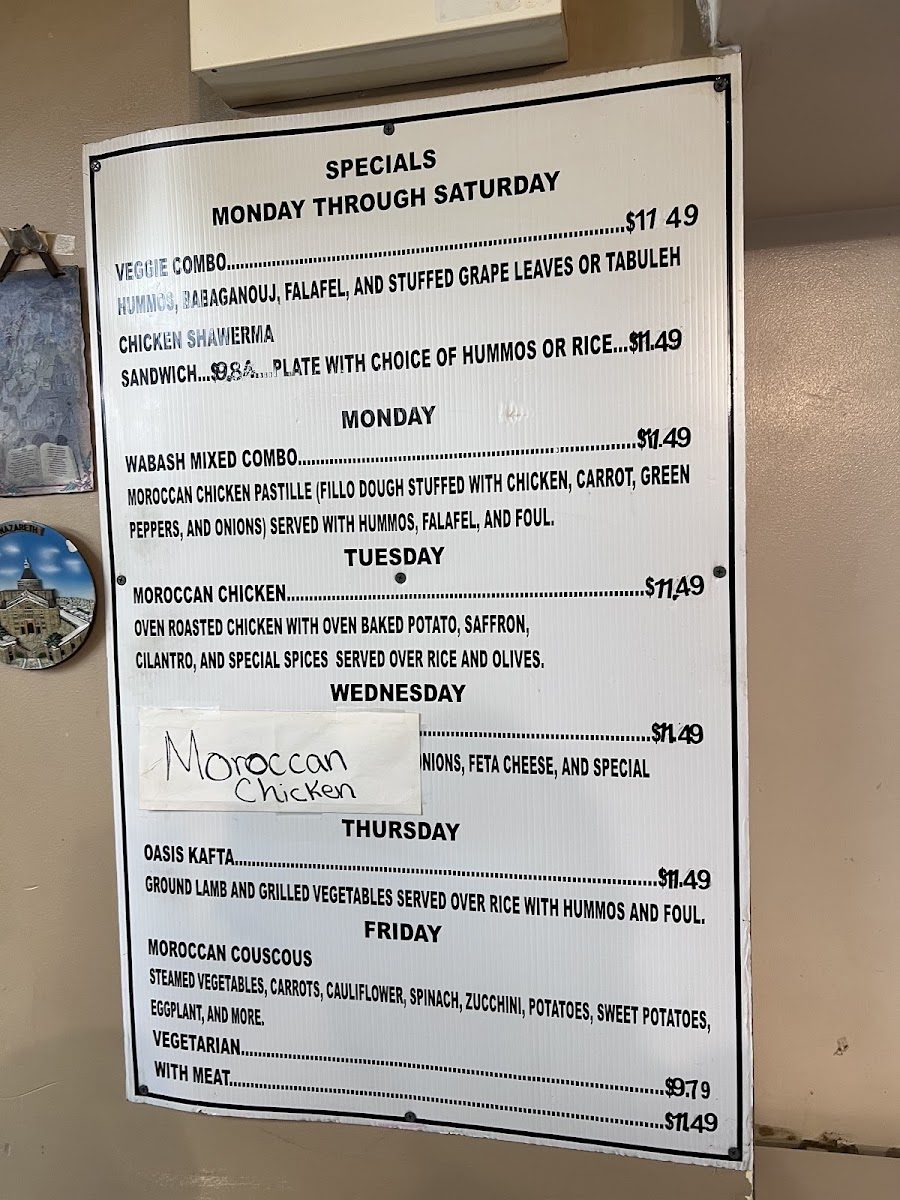 SPECIALS
MONDAY THROUGH SATURDAY
VEGGIE COMBO..........$11 49
HUMMOS, BABAGANOUJ, FALAFEL, AND STUFFED GRAPE LEAVES OR TABULEH
CHICKEN SHAWERMA
SANDWICH...$9.84....PLATE WITH CHOICE OF HUMMOS OR RICE...$11.49
MONDAY
WABASH MIXED COMBO..........$11.49
MOROCCAN CHICKEN PASTILLE (FILLO DOUGH STUFFED WITH CHICKEN, CARROT, GREEN
PEPPERS, AND ONIONS) SERVED WITH HUMMOS, FALAFEL, AND FOUL.
TUESDAY
MOROCCAN CHICKEN..........$11.49
OVEN ROASTED CHICKEN WITH OVEN BAKED POTATO, SAFFRON,
CILANTRO, AND SPECIAL SPICES SERVED OVER RICE AND OLIVES.
WEDNESDAY
Moroccan
Chicken
..........$11.49
ONIONS, FETA CHEESE, AND SPECIAL
THURSDAY
OASIS KAFTA..........$11.49
GROUND LAMB AND GRILLED VEGETABLES SERVED OVER RICE WITH HUMMOS AND FOUL.
FRIDAY
MOROCCAN COUSCOUS
STEAMED VEGETABLES, CARROTS, CAULIFLOWER, SPINACH, ZUCCHINI, POTATOES, SWEET POTATOES,
EGGPLANT, AND MORE.
VEGETARIAN..........$9.79
WITH MEAT..........$11.49
NAZARETH